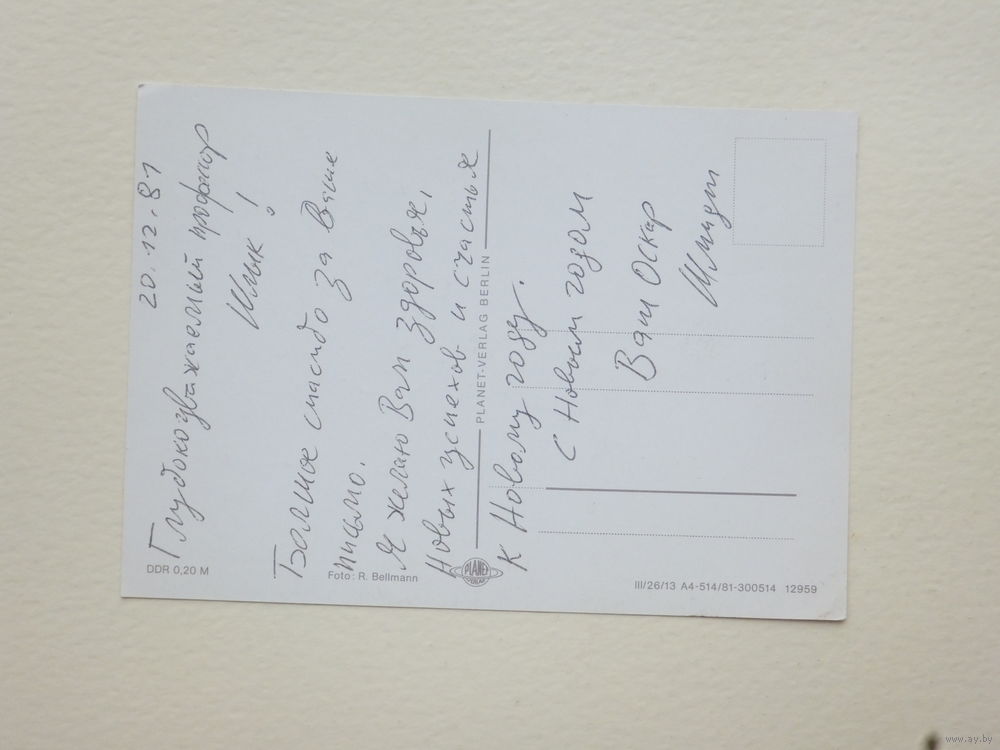 20.12.81
Глубокоуважаемый профессор
Шмык!
Болшое спасибо за Ваше
письмо.
Я желаю Вам здоровье,
Новых успехов и счастья
к Новому году.
С Новым годом
Ваш Оскар
Шмидт
DDR 0,20 M
Foto: R. Bellmann
PLANET-VERLAG BERLIN
PLANET
VERLAG
III/26/13 A4-514/81-300514 12959
www.ay.by